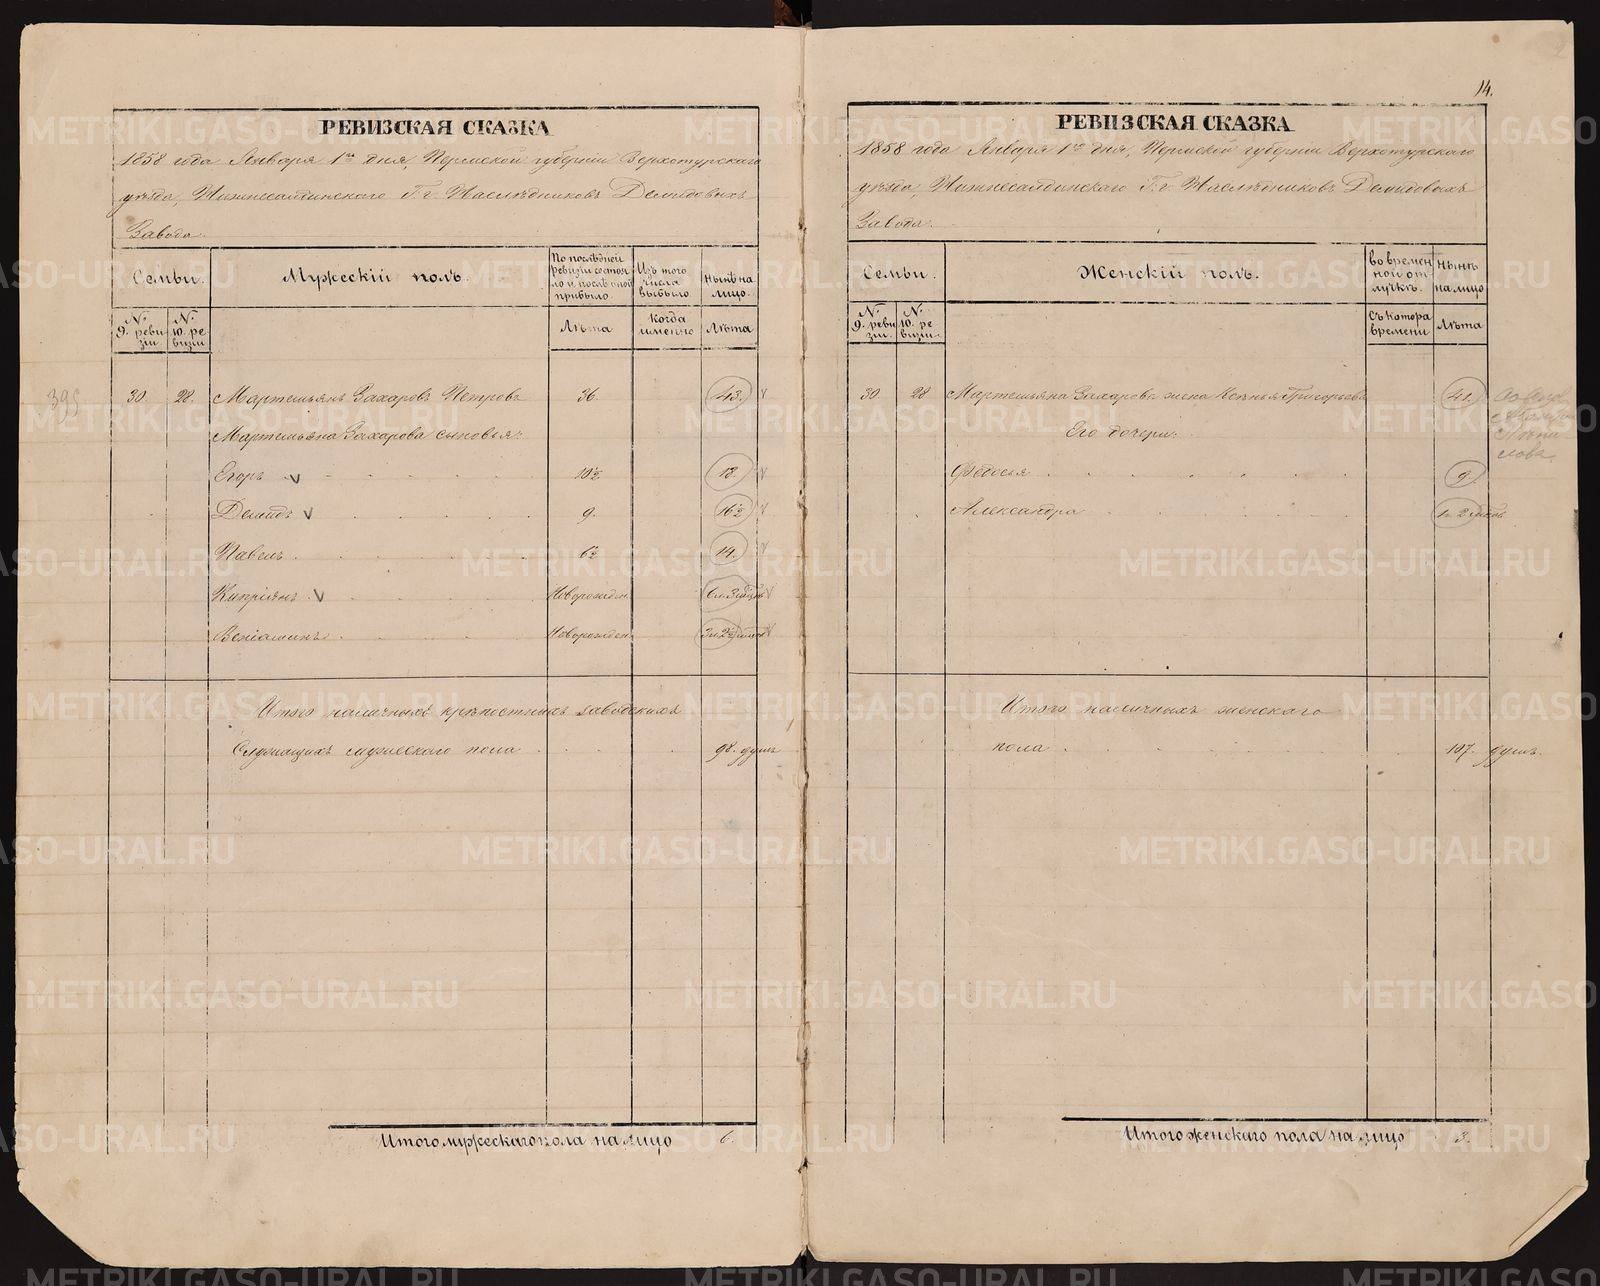 14.
РЕВИЗСКАЯ СКАЗКА
1858 года Января 1го дня, Пермской губернiи Верхотурскаго
уѣзда, Нижнесалдинскаго Г. г. Наслѣдниковъ Демидовыхъ
Завода.
Семьи.
Мужескiй полъ.
По послѣдней ревизiи состояло и послѣ оной прибыло.
Изъ того числа выбыло
Нынѣ на лицо.
№ 9. ревизiи.
№ 10. ревизiи
Лѣта
Когда именно
Лѣта
395
30 28. Мартемьянъ Захаровъ Петровъ 36. 43. v
Мартемьяна Захарова сыновья:
Егоръ v 10½ 18. v
Демидъ v 9. 16½ v
Павелъ 6½ 14. v
Кипрiянъ v Новорожден. v
Венiаминъ Новорожден. v
Итого наличныхъ крѣпостныхъ заводскихъ
Служащихъ мужескаго пола 98. душъ
Итого мужескаго пола на лицо 6.
РЕВИЗСКАЯ СКАЗКА
1858 года Января 1го дня, Пермской губернiи Верхотурскаго
уѣзда, Нижнесалдинскаго Г. г. Наслѣдниковъ Демидовыхъ
Завода.
Семьи.
Женскiй полъ.
Во временной отлучкѣ.
Нынѣ на лицо
№ 9. ревизiи.
№ 10. ревизiи.
Съ котора времени
Лѣта
30 28 Мартемьяна Захарова жена Ксенья Григорьева 41.
Его дочери:
Федосья 9.
Александра
Итого наличныхъ женскаго
пола 107. душъ.
Итого женскаго пола на лицо 3.
METRIKI.GASO-URAL.RU